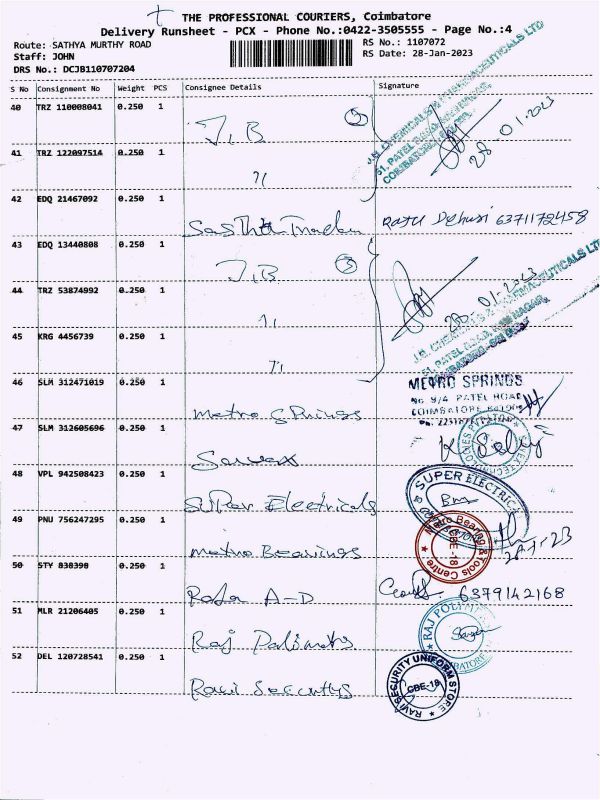 THE PROFESSIONAL COURIERS, Coimbatore
Delivery Runsheet - PCX - Phone No.:0422-3505555 - Page No.:4
Route: SATHYA MURTHY ROAD
RS No.: 1107072
Staff: JOHN
RS Date: 28-Jan-2023
DRS No.: DCJB110707204
S No Consignment No Weight PCS Consignee Details Signature
40 TRZ 110008041 0.250 1
J.B
J.B. CHEMICALS & PHARMACEUTICALS LTD
51, PATEL ROAD, RAM NAGAR,
28.01.2023
41 TRZ 122097514 0.250 1
42 EDQ 21467092 0.250 1
6371172458
43 EDQ 13440808 0.250 1
J.B
J.B. CHEMICALS & PHARMACEUTICALS LTD
51, PATEL ROAD, RAM NAGAR,
44 TRZ 53874992 0.250 1
45 KRG 4456739 0.250 1
46 SLM 312471019 0.250 1
Metro Springs
METRO SPRINGS
PATEL ROAD
47 SLM 312605696 0.250 1
48 VPL 942508423 0.250 1
Super Electricals
SUPER ELECTRICALS
49 PNU 756247295 0.250 1
Metro Bearings
Metro Bearing & Tools Centre
CBE-18
50 STY 838398 0.250 1
6379142168
51 MLR 21206405 0.250 1
RAJ POLYMERS
COIMBATORE
52 DEL 120728541 0.250 1
RAVI SECURITY UNIFORM STORE
CBE-18